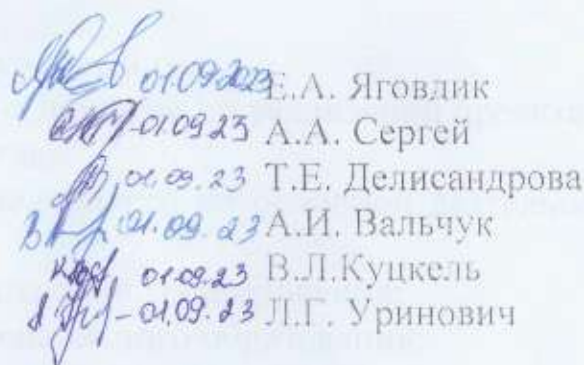 01.09.2023 Е.А. Яговдик
01.09.23 А.А. Сергей
01.09.23 Т.Е. Делисандрова
01.09.23 А.И. Вальчук
01.09.23 В.Л.Куцкель
01.09.23 Л.Г. Уринович